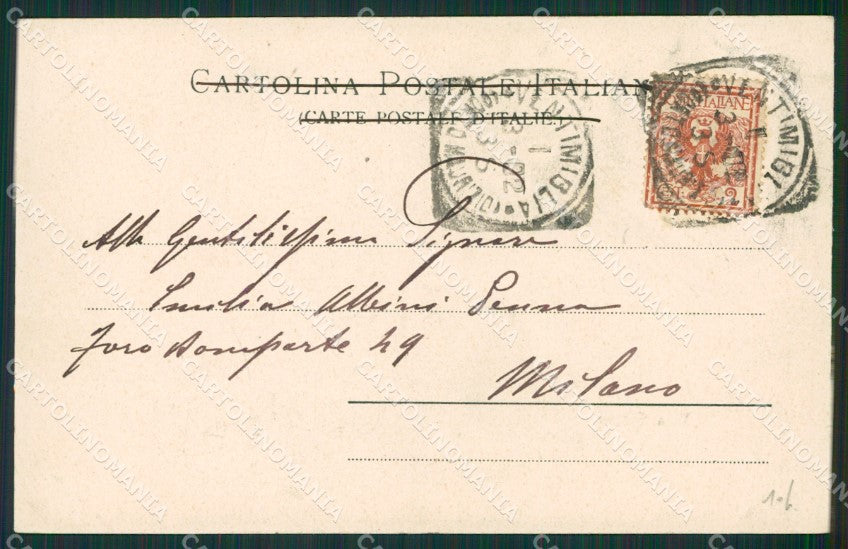 CARTOLINA POSTALE ITALIAN
(CARTE POSTALE D'ITALIE)
VENTIMIGLIA
3-02
3 S
ITALIANE
VENTIMIGL
Alla Gentilissima Signora
Emilia Albini Penna
Foro Bonaparte 49
Milano
CARTOLINOMANIA